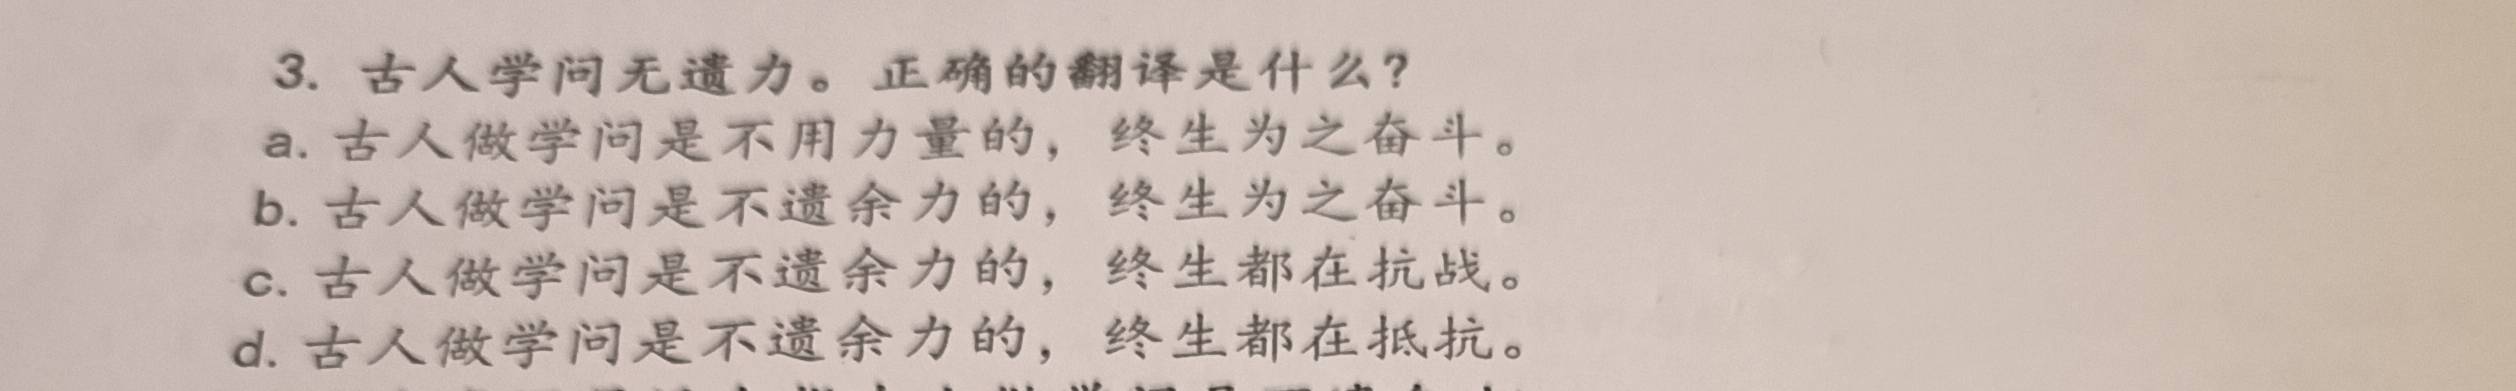 3. 古人学问无遗力。正确的翻译是什么?
a. 古人做学问是不用力量的，终生为之奋斗。
b. 古人做学问是不遗余力的，终生为之奋斗。
c. 古人做学问是不遗余力的，终生都在抗战。
d. 古人做学问是不遗余力的，终生都在抵抗。